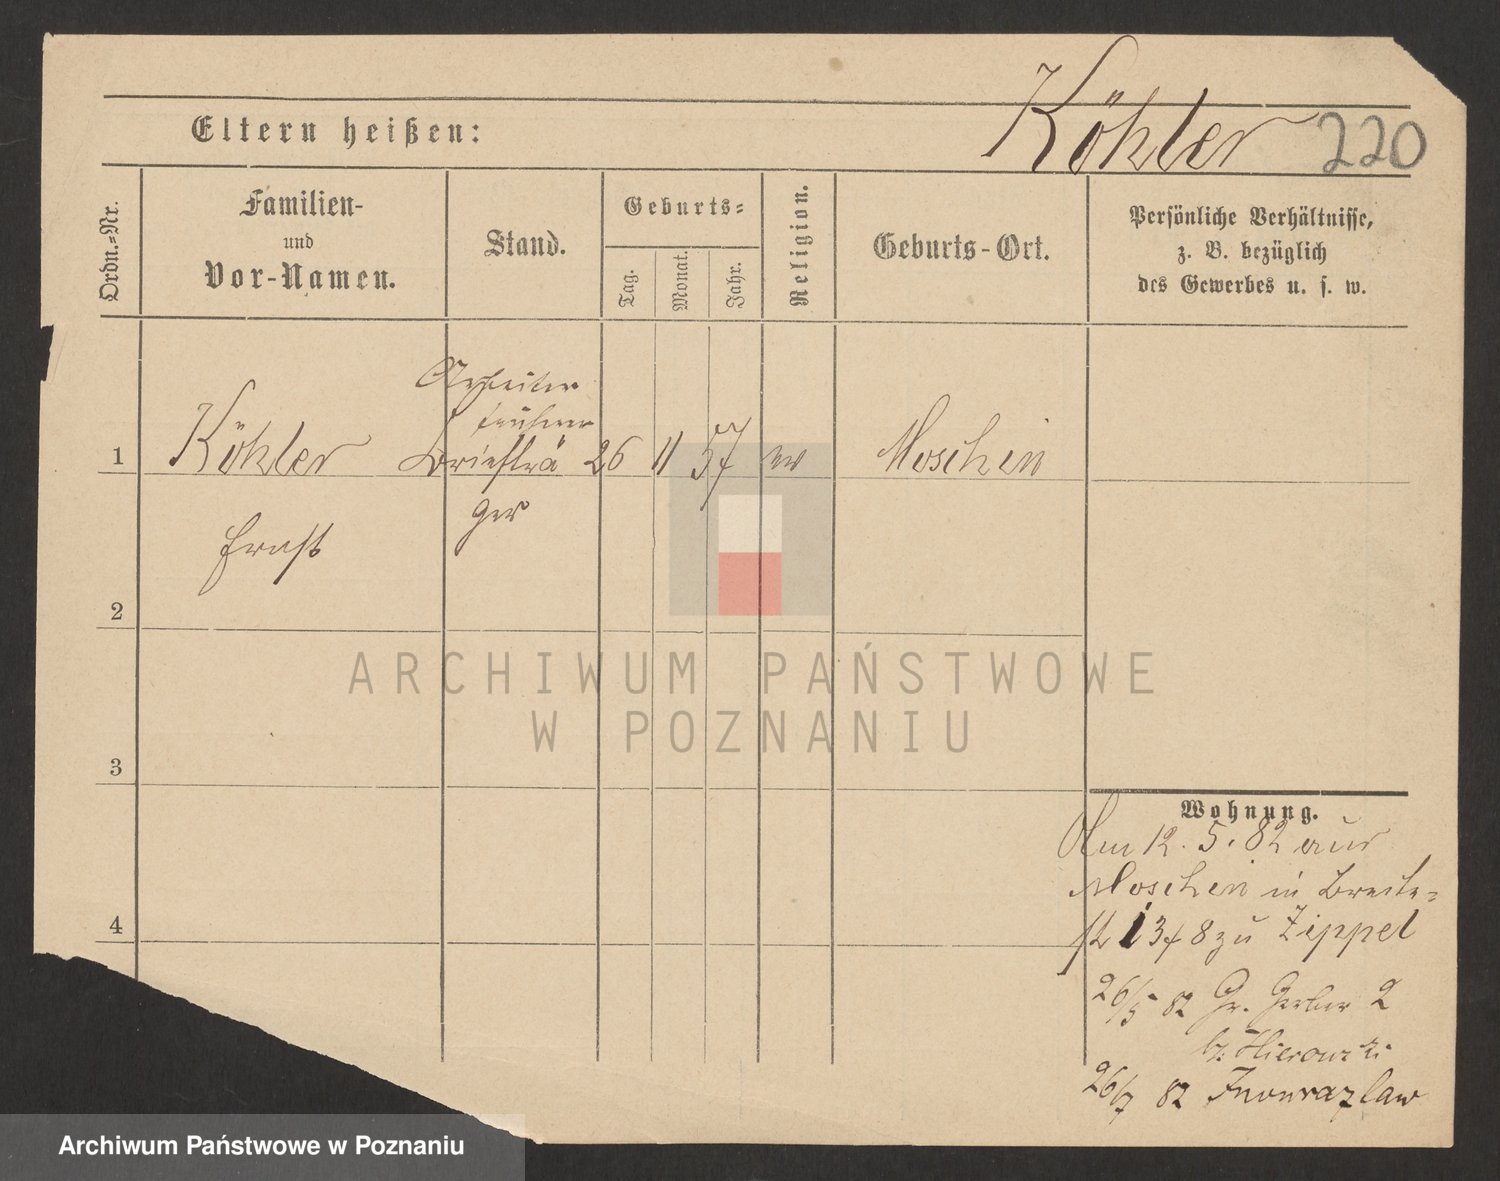 Köhler 220
Eltern heißen:
Ordn.=Nr.
Familien-
und
Vor-Namen.
Stand.
Geburts=
Tag.
Monat.
Jahr.
Religion.
Geburts-Ort.
Persönliche Verhältnisse,
z. B. bezüglich
des Gewerbes u. s. w.
Arbeiter
früherer
1 Köhler Briefträ 26 11 57 Moschin
ger
Ernst
2
3
4
Wohnung.
Am 12. 5. 82 aus
Moschin in Breite=
8 zu Zippel
26/5 82 Gr. Gerber 2
26/7 82 Inowrazlaw
ARCHIWUM PAŃSTWOWE
W POZNANIU
Archiwum Państwowe w Poznaniu